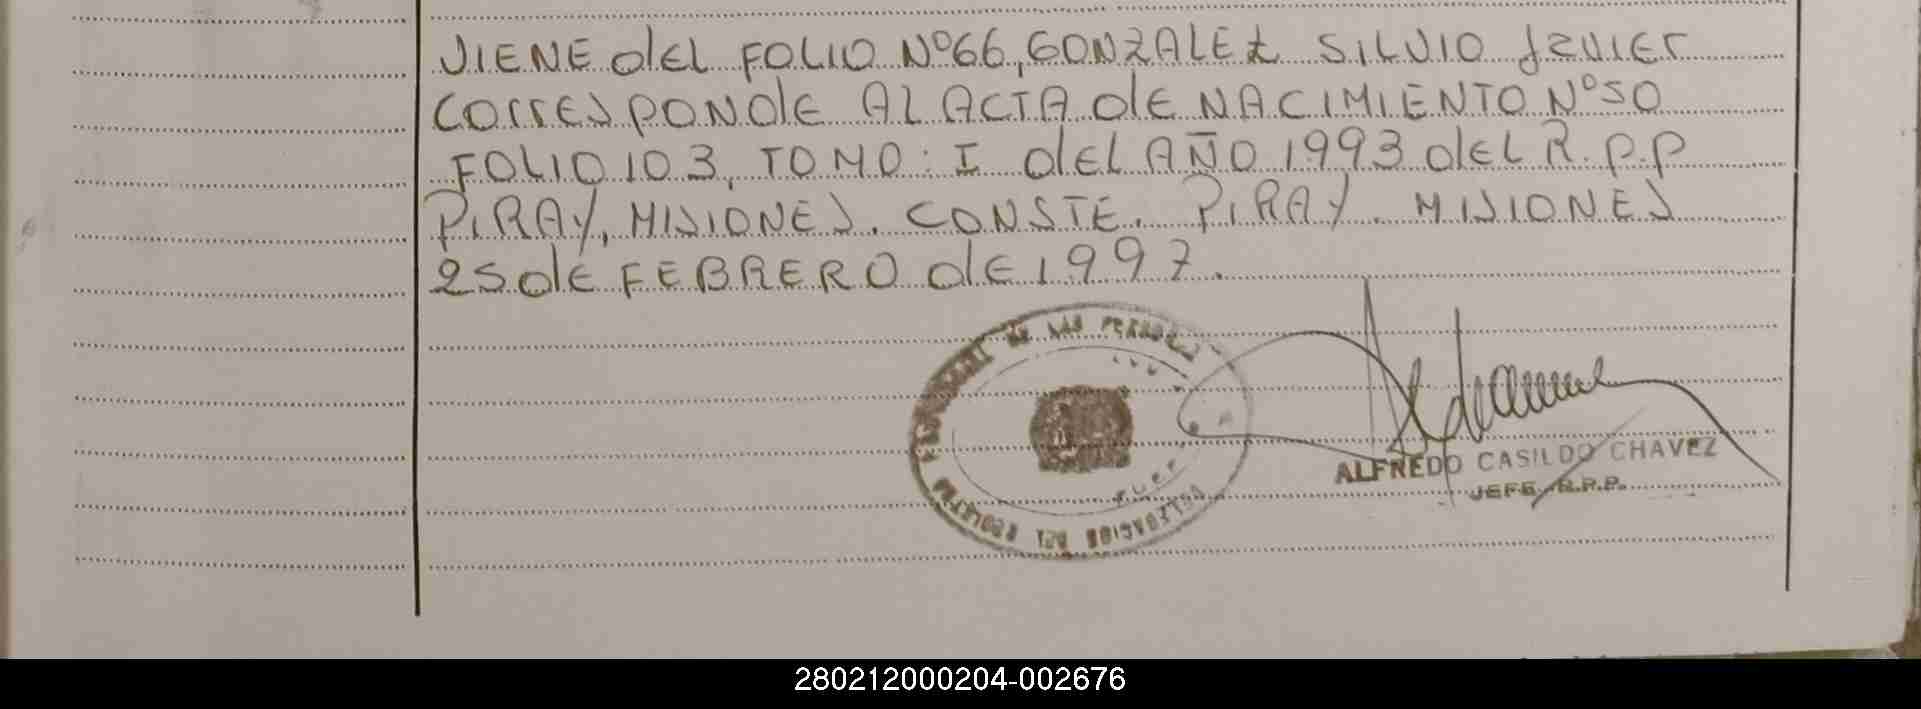 VIENE del FOLIO Nº66, GONZALEZ SILVIO Javier
CORRESPONDE AL ACTA de NACIMIENTO Nº50
FOLIO 103, TOMO: I del AÑO 1993 del R.P.P
PIRAY, MISIONES. CONSTE. PIRAY. MISIONES
25 de FEBRERO de 1997.
DE LAS PERSONAS
DEL REGISTRO
ALFREDO CASILDO CHAVEZ
JEFE R.P.P.
280212000204-002676